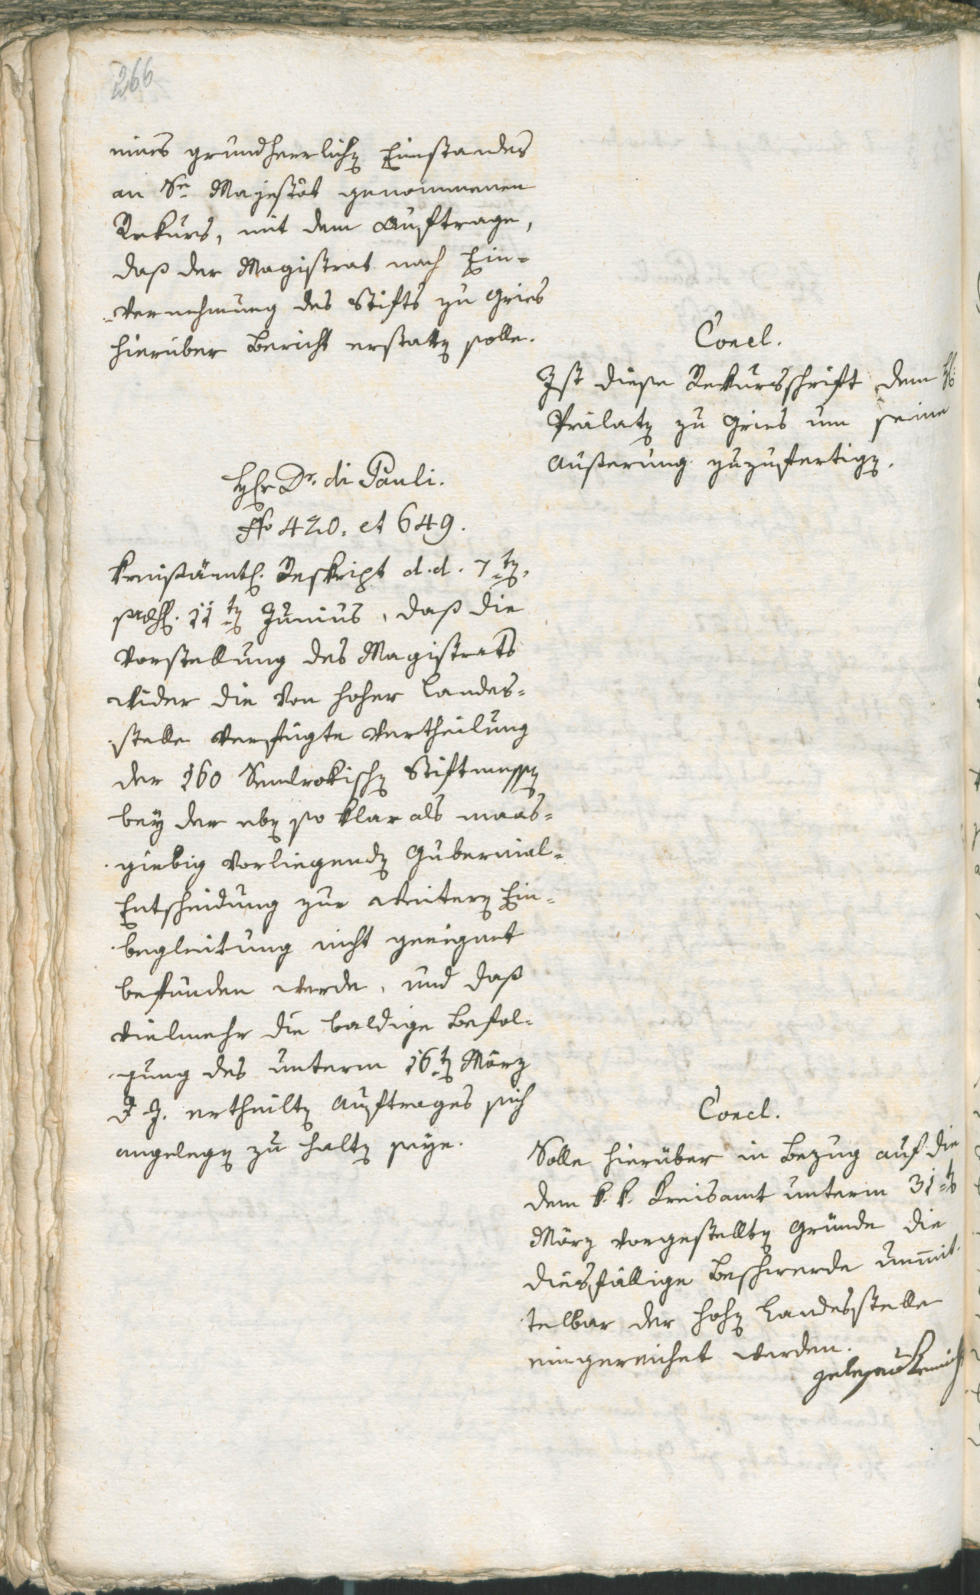 266
eines grundherrlichen Einstandes
an Se Majestät genommenen
Rekurs, mit dem Auftrage,
daß der Magistrat nach Ein-
vernehmung des Stifts zu Gries
hierüber Bericht erstatten solle.
Concl.
Ist diese Rekursschrift dem H:
Prälaten zu Gries um seine
Außerung zuzufertigen.
Herr Dr. di Pauli.
No 420. et 649.
Kreisämtl. Reskript d. d. 7ten,
11ten Junius, daß die
Vorstellung des Magistrats
wider die von hoher Landes-
stelle verfügte Vertheilung
der 160 Stiftmessen
bey der eben so klar als maas-
giebig vorliegenden Gubernial-
Entscheidung zur weitern Ein-
begleitung nicht geeignet
befunden werde, und daß
vielmehr die baldige Befol-
gung des unterm 16ten März
d. J. ertheilten Auftrages sich
angelegen zu halten seye.
Concl.
Solle hierüber in Bezug auf die
dem k. k. Kreisamt unterm 31ten
März vorgestellten Gründe die
diesfällige Beschwerde unmit-
telbar der hohen Landesstelle
eingereichet werden.